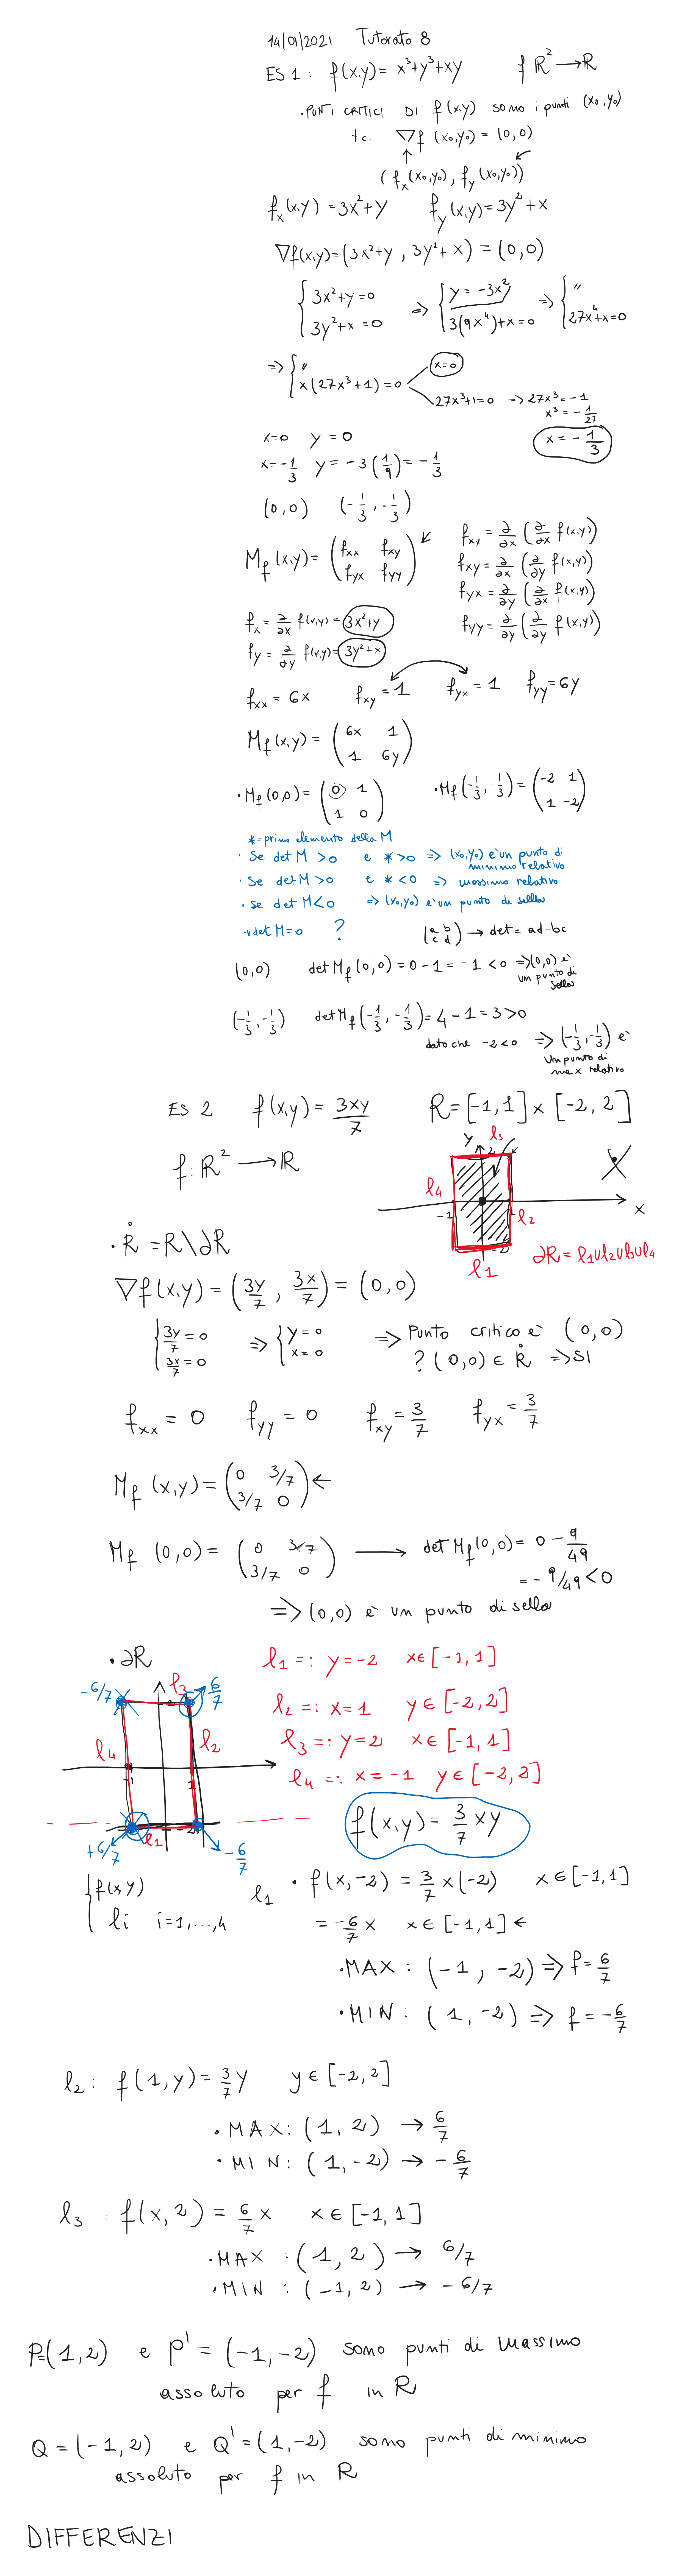 14/01/2021 Tutorato 8
ES 1: f(x,y) = x³+y³+xy f:ℝ² → ℝ
• PUNTI CRITICI DI f(x,y) sono i punti (x₀,y₀)
t.c. ∇f (x₀,y₀) = (0,0)
↑
(f_x(x₀,y₀), f_y(x₀,y₀))
f_x(x,y) = 3x²+y f_y(x,y) = 3y²+x
∇f(x,y) = (3x²+y, 3y²+x) = (0,0)
{3x²+y=0 => {y = -3x² => {"
{3y²+x=0 {3(9x⁴)+x=0 {27x⁴+x=0
=> {" x=0
{x(27x³+1)=0 27x³+1=0 → 27x³=-1
x³ = -1/27
x=0 y=0 x = -1/3
x=-1/3 y = -3(1/9) = -1/3
(0,0) (-1/3, -1/3)
M_f(x,y) = (f_xx f_xy
f_yx f_yy) ↙
f_xx = ∂/∂x (∂/∂x f(x,y))
f_xy = ∂/∂x (∂/∂y f(x,y))
f_yx = ∂/∂y (∂/∂x f(x,y))
f_yy = ∂/∂y (∂/∂y f(x,y))
f_x = ∂/∂x f(x,y) = 3x²+y
f_y = ∂/∂y f(x,y) = 3y²+x
f_xx = 6x f_xy = 1 f_yx = 1 f_yy = 6y
M_f(x,y) = (6x 1
1 6y)
• M_f(0,0) = (0 1 • M_f(-1/3,-1/3) = (-2 1
1 0) 1 -2)
* = primo elemento della M
• Se det M > 0 e * > 0 => (x₀,y₀) è un punto di
minimo relativo
• Se det M > 0 e * < 0 => massimo relativo
• se det M < 0 => (x₀,y₀) è un punto di sella
• * det M = 0 ? (a b
c d) → det = ad-bc
(0,0) det M_f(0,0) = 0 - 1 = -1 < 0 => (0,0) è
un punto di
sella
(-1/3,-1/3) det M_f(-1/3,-1/3) = 4 - 1 = 3 > 0
dato che -2<0 => (-1/3,-1/3) è
un punto di
max relativo
ES 2 f(x,y) = 3xy/7 R = [-1,1] × [-2,2]
f:ℝ² → ℝ
y l₃
2
l₄
-1 1 l₂ x
-2
l₁ ∂R = l₁∪l₂∪l₃∪l₄
• R̊ = R\∂R
∇f(x,y) = (3y/7, 3x/7) = (0,0)
{3y/7 = 0 => {y=0 => Punto critico è (0,0)
{3x/7 = 0 {x=0 ? (0,0) ∈ R̊ => SI
f_xx = 0 f_yy = 0 f_xy = 3/7 f_yx = 3/7
M_f (x,y) = (0 3/7
3/7 0) ←
M_f (0,0) = (0 3/7
3/7 0) → det M_f(0,0) = 0 - 9/49
= -9/49 < 0
=> (0,0) è un punto di sella
• ∂R
-6/7 l₃ 2 6/7
l₄ l₂
-1 1
+6/7 l₁ -2 -6/7
l₁ =: y=-2 x∈[-1,1]
l₂ =: x=1 y∈[-2,2]
l₃ =: y=2 x∈[-1,1]
l₄ =: x=-1 y∈[-2,2]
f(x,y) = 3/7 xy
{f(x,y)
{li i=1,...,4
l₁ • f(x,-2) = 3/7 x(-2) x∈[-1,1]
= -6/7 x x∈[-1,1] ←
• MAX: (-1,-2) => f = 6/7
• MIN: (1,-2) => f = -6/7
l₂: f(1,y) = 3/7 y y∈[-2,2]
• MAX: (1,2) → 6/7
• MIN: (1,-2) → -6/7
l₃: f(x,2) = 6/7 x x∈[-1,1]
• MAX: (1,2) → 6/7
• MIN: (-1,2) → -6/7
P=(1,2) e P' = (-1,-2) sono punti di massimo
assoluto per f in R
Q = (-1,2) e Q' = (1,-2) sono punti di minimo
assoluto per f in R
DIFFERENZI